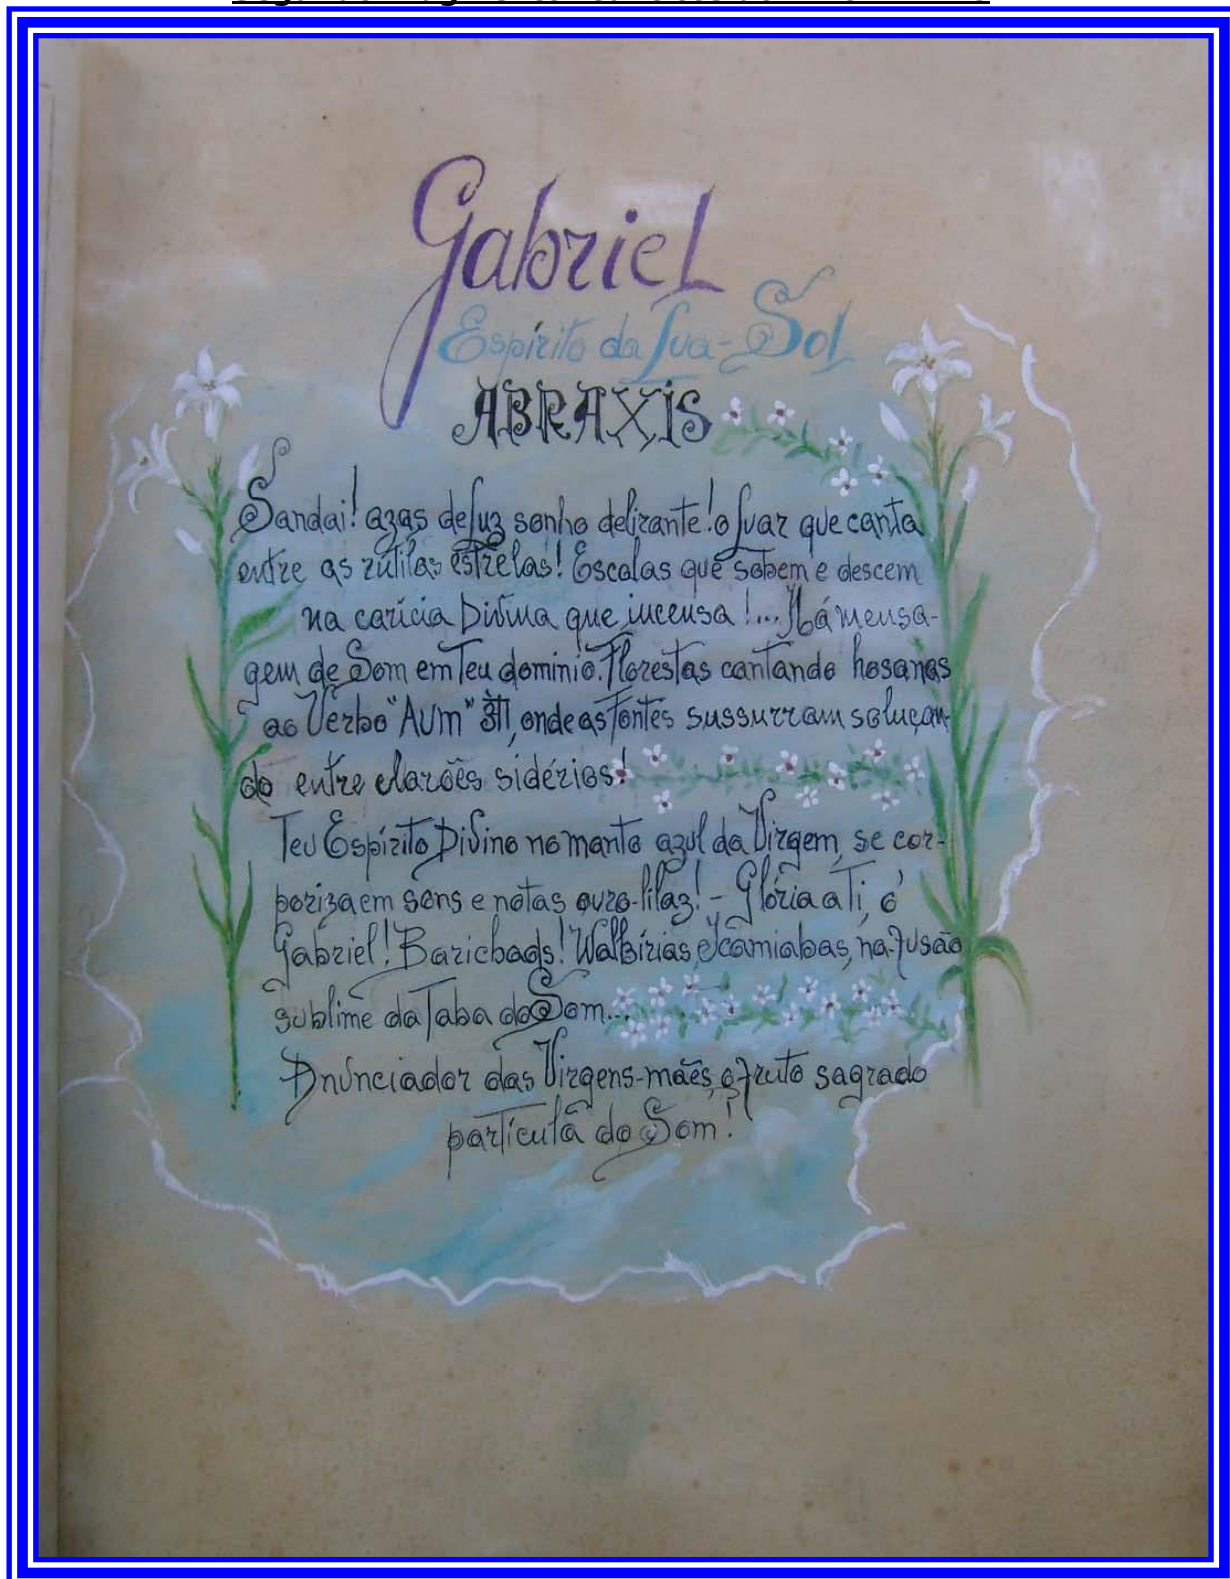 Gabriel
Espírito da Lua-Sol
ABRAXIS
Sandai! azas de luz sonho delirante! o luar que canta
entre as rútilas estrelas! Escalas que sobem e descem
na carícia Divina que incensa!... Há mensa-
gem de Som em Teu dominio. Florestas cantando hosanas
ao Verbo "AUM" onde as fontes sussurram soluçan-
do entre clarões sidérios!
Teu Espírito Divino no manto azul da Virgem, se cor-
poriza em sons e notas ouro-lilaz! - Glória a Ti, ó
Gabriel! Barichads! Walkírias e Icamiabas, na fusão
sublime da Taba do Som...
Anunciador das Virgens-mães, o fruto sagrado
partícula do Som!